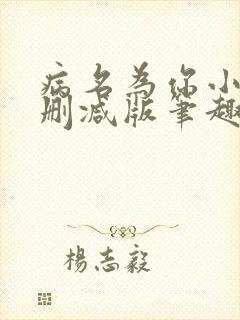 病名为你小
删减版笔趣
杨志毅